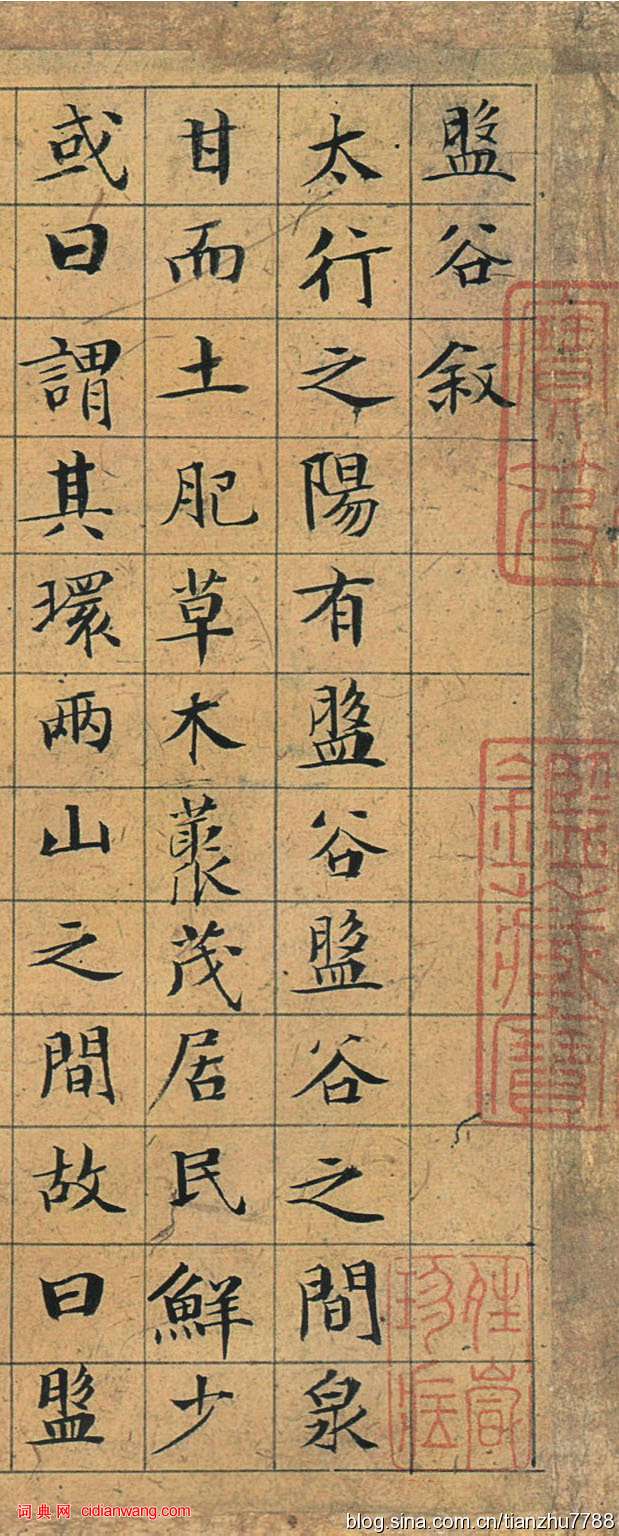 寶笈
鑑藏寶
盤谷叙
太行之陽有盤谷盤谷之間泉
甘而土肥草木藂茂居民鮮少
或曰謂其環兩山之間故曰盤
词典网 cidianwang.com
blog.sina.com.cn/tianzhu7788